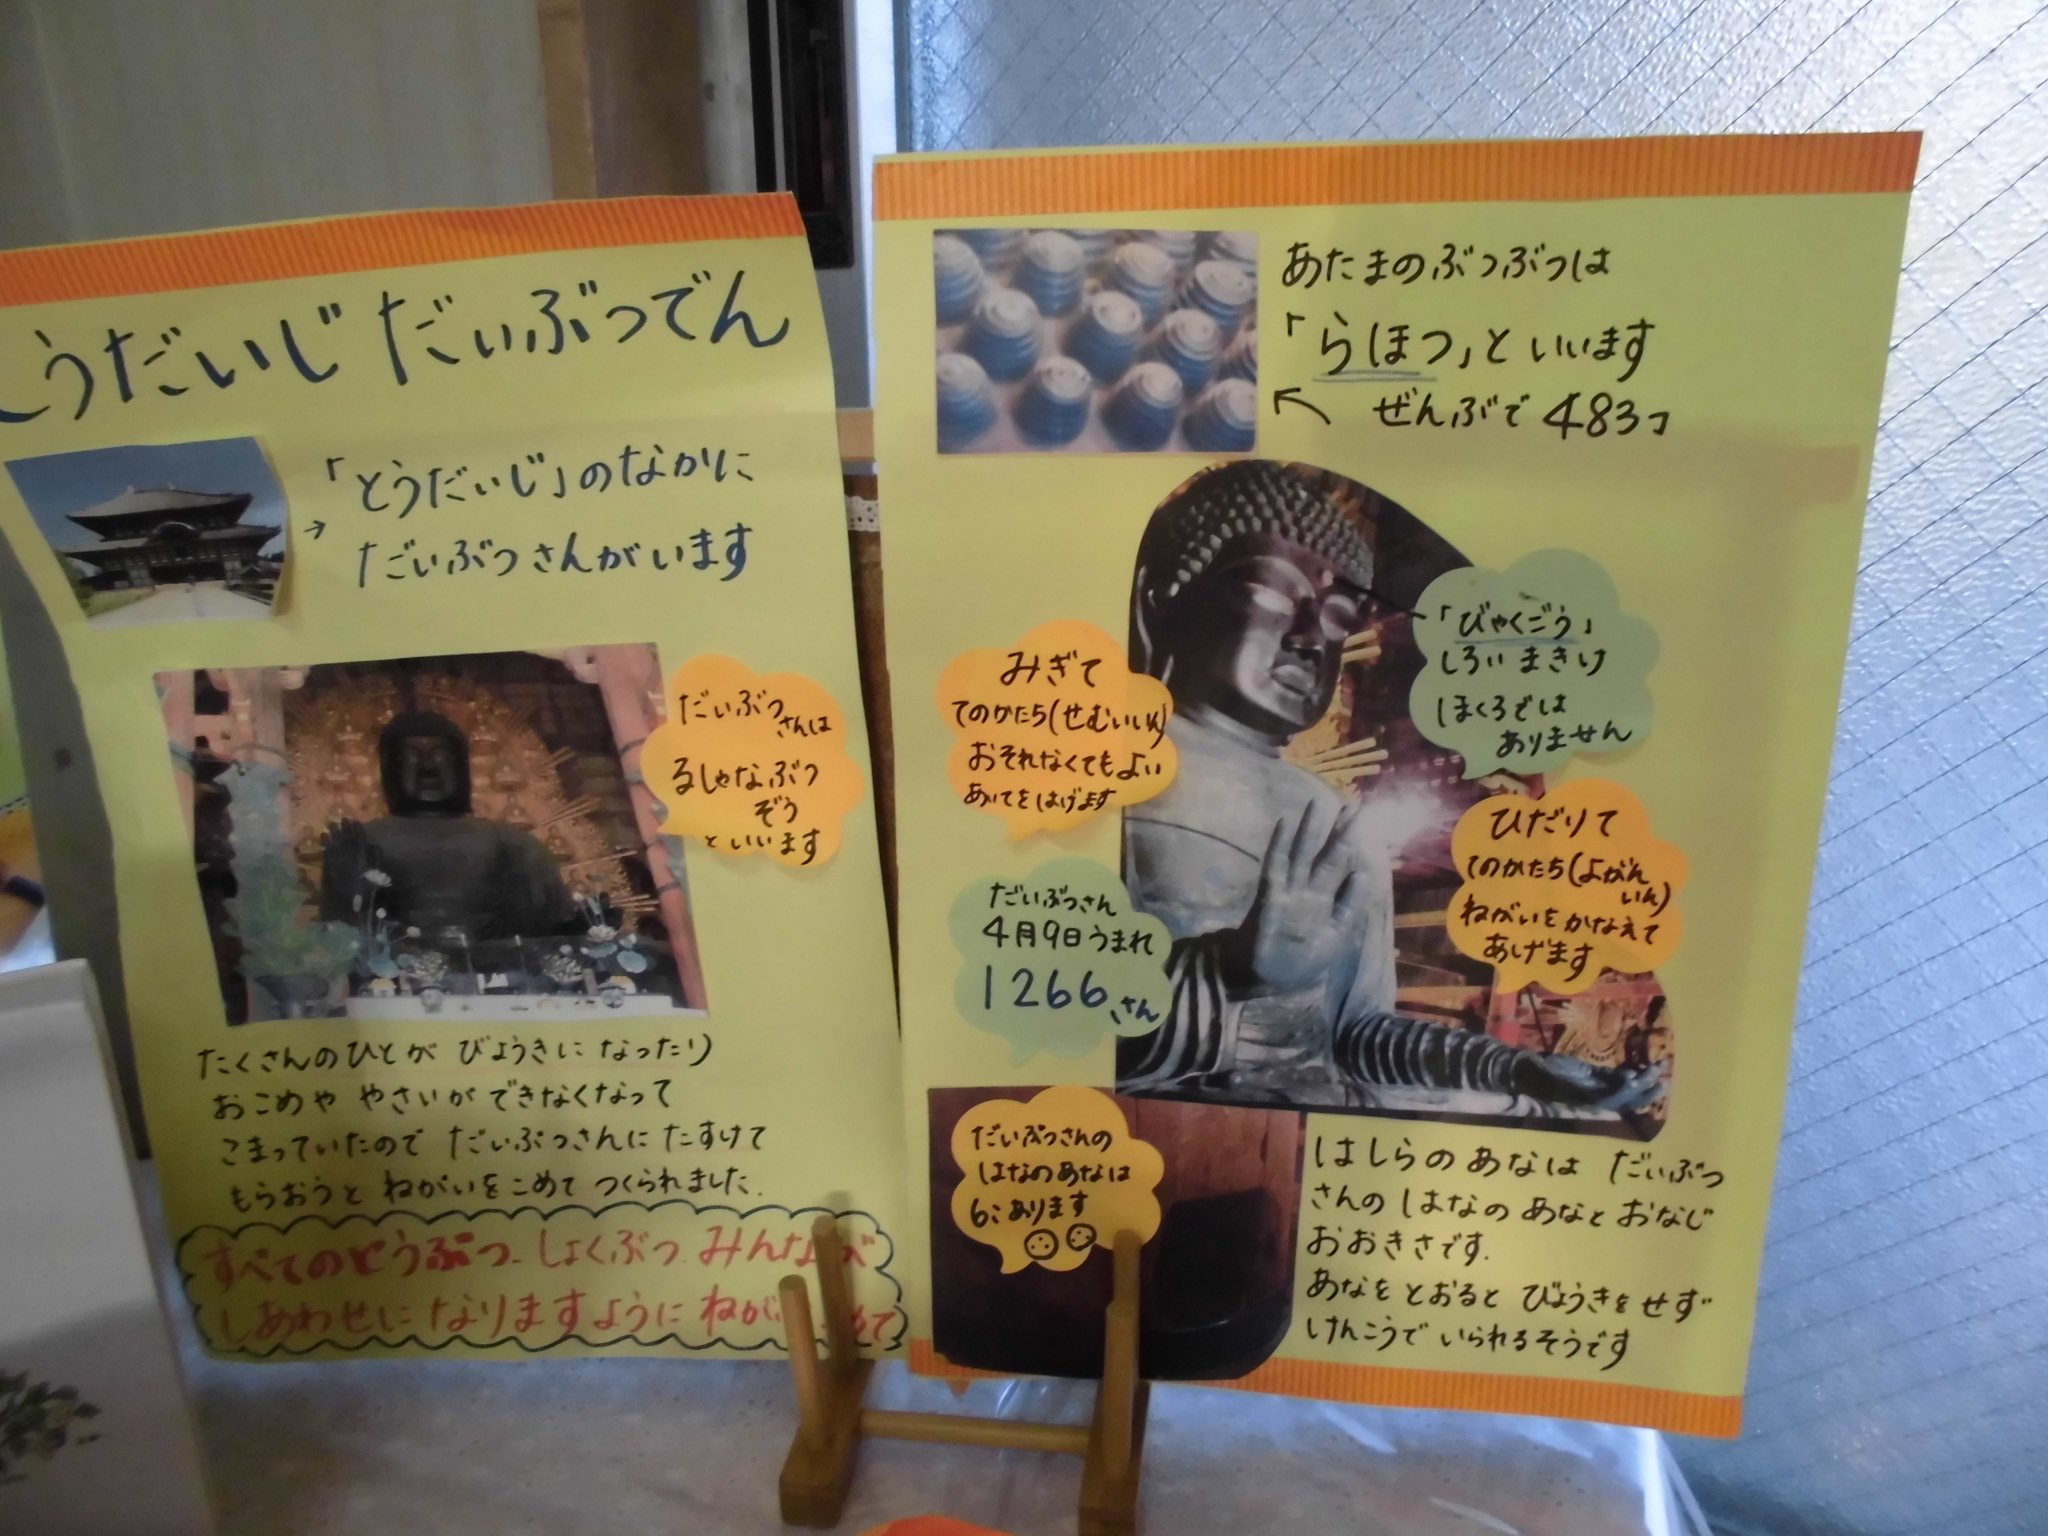 とうだいじ だいぶつでん
「とうだいじ」のなかに
だいぶつさんがいます
だいぶつ
さんは
るしゃなぶつ
ぞう
といいます
たくさんのひとが びょうきに なったり
おこめや やさいが できなくなって
こまっていたので だいぶつさんに たすけて
もらおうと ねがいをこめて つくられました.
すべてのどうぶつ しょくぶつ みんなが
しあわせに なりますように ねが
あたまのぶつぶつは
「らほつ」といいます
ぜんぶで 483コ
「びゃくごう」
しろい まきげ
ほくろでは
ありません
みぎて
てのかたち(せむいいん)
おそれなくてもよい
あいてをはげます
ひだりて
てのかたち(よがん
いん)
ねがいをかなえて
あげます
だいぶつさん
4月9日うまれ
1266さん
だいぶつさんの
はなのあなは
6こあります
はしらの あなは だいぶつ
さんの はなの あなと おなじ
おおきさです.
あなを とおると びょうきを せず
けんこうで いられるそうです